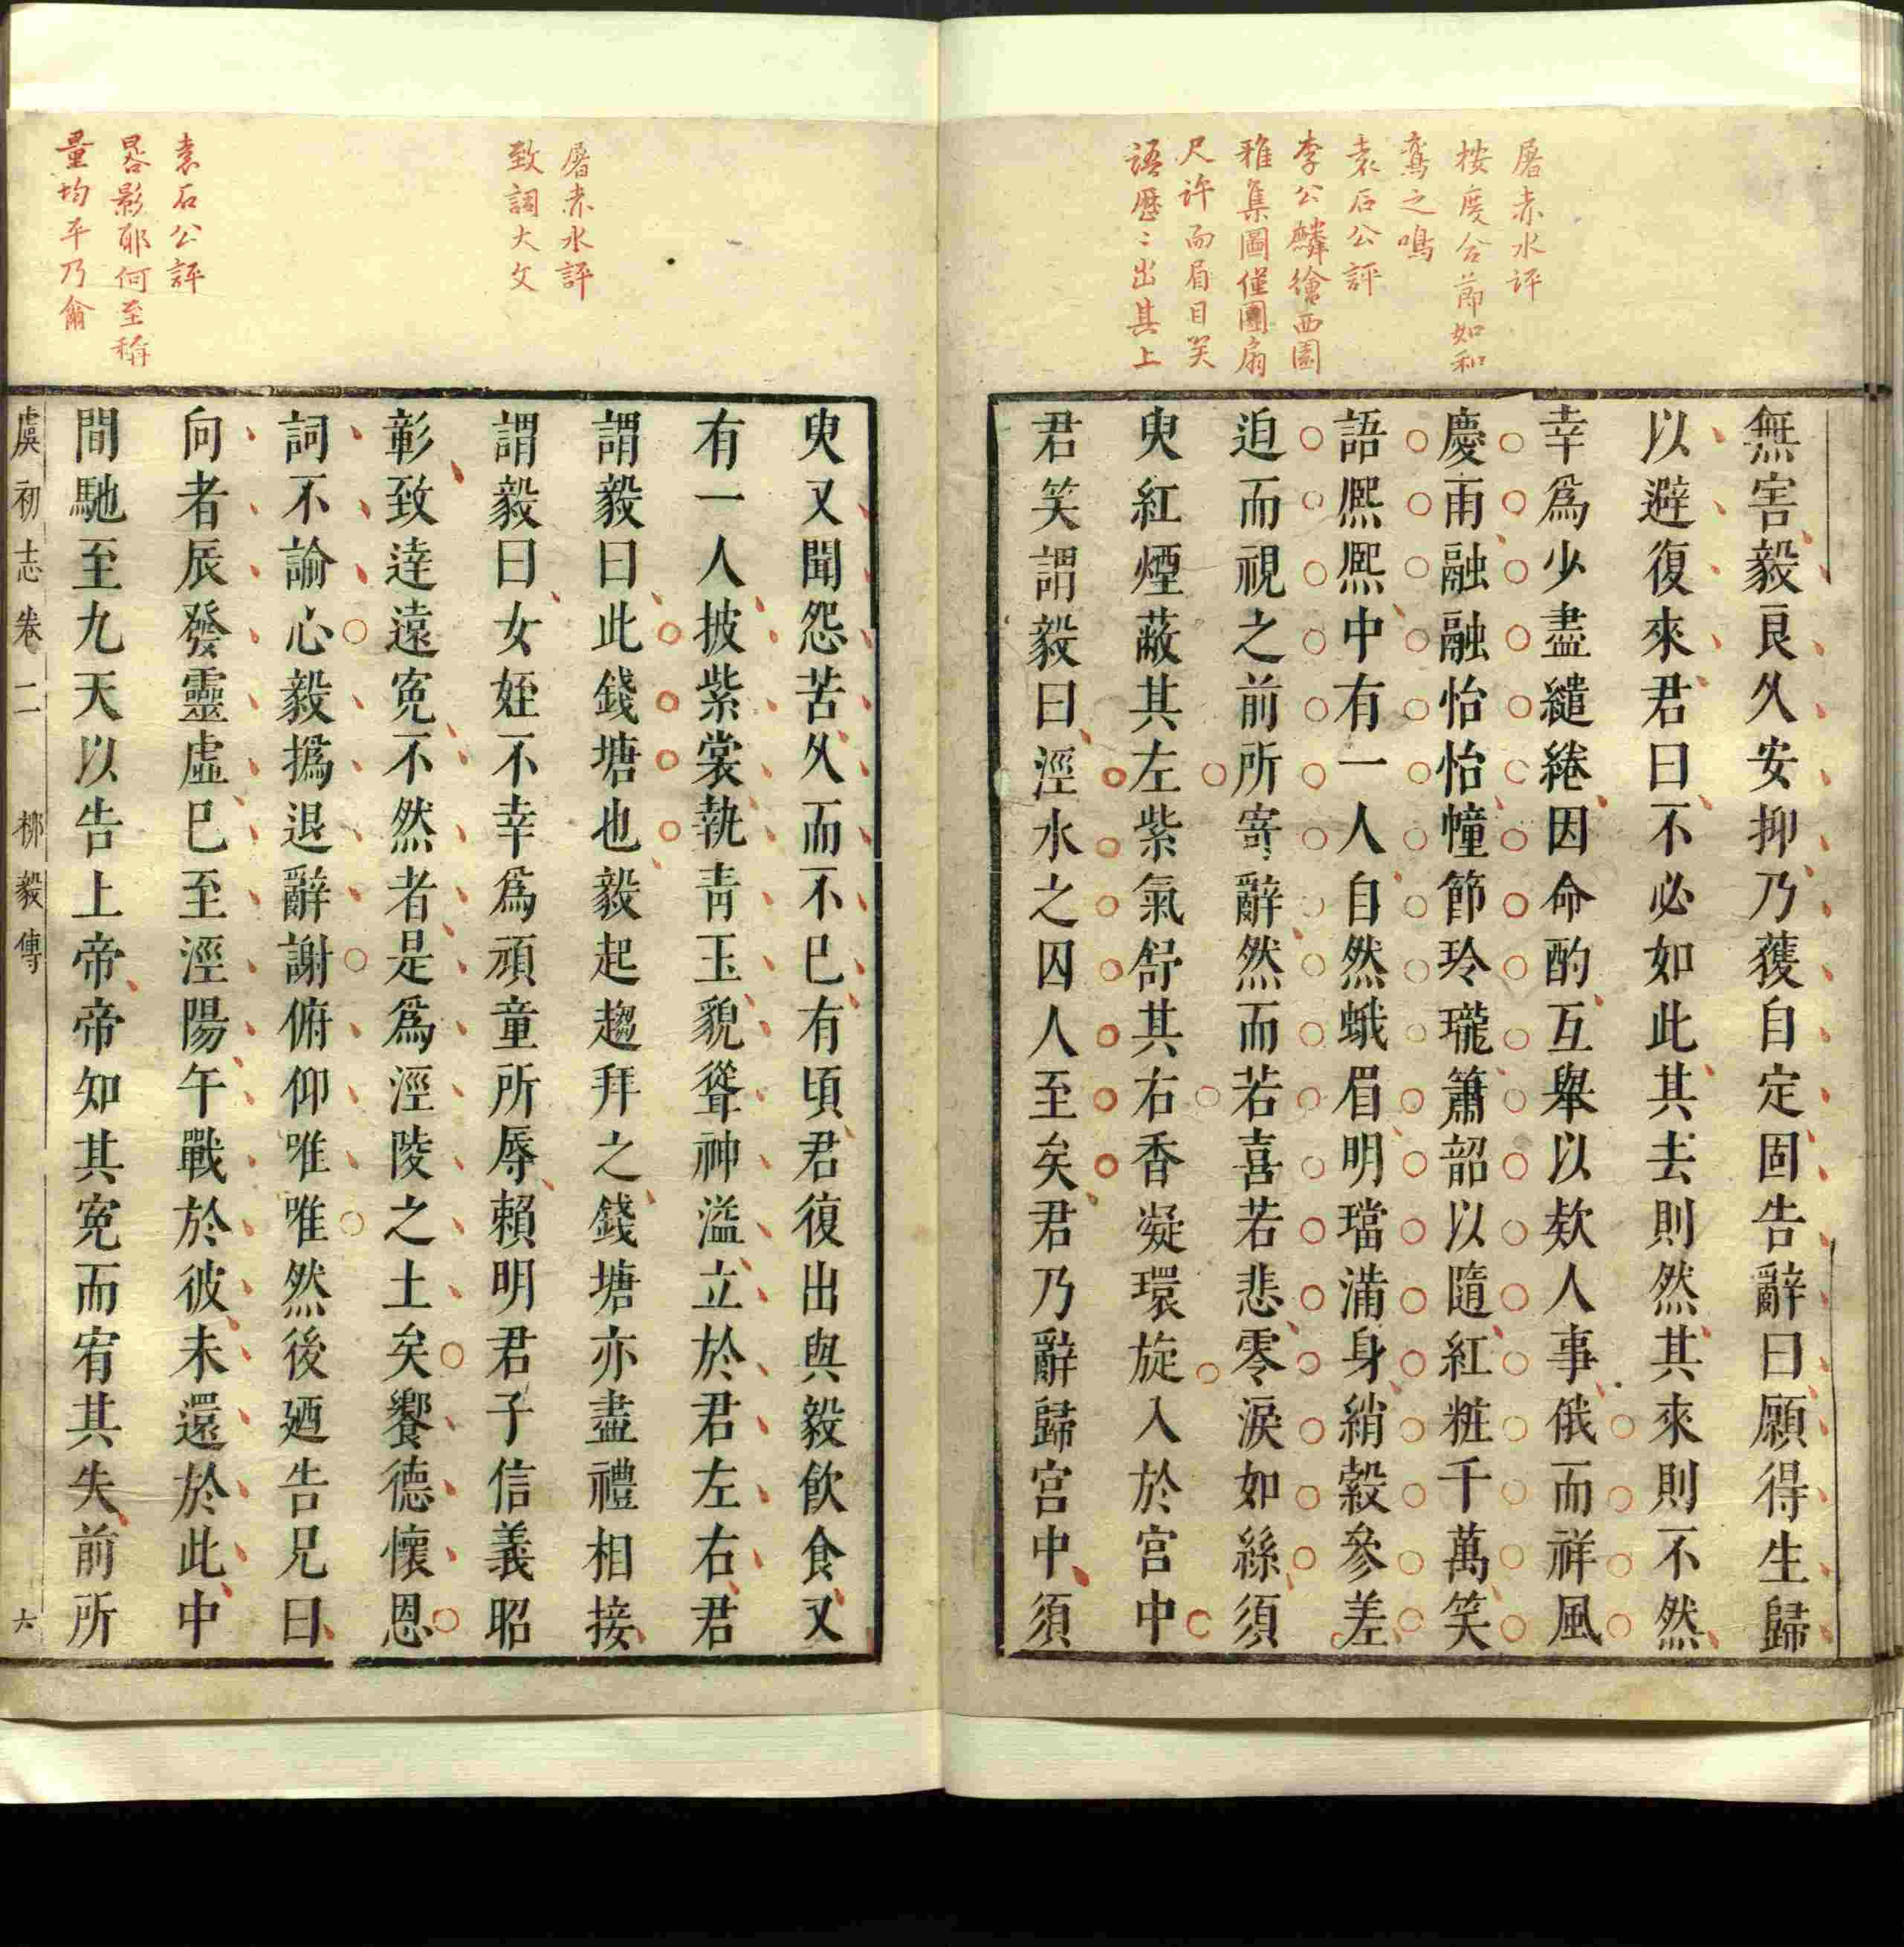 屠赤水評
按度合節如和
鸞之鳴
袁石公評
李公麟繪西園
雅集圖僅團扇
尺許而眉目笑
語歷〻出其上
無害毅良久安抑乃獲自定固告辭曰願得生歸
以避復來君曰不必如此其去則然其來則不然
幸爲少盡繾綣因命酌互舉以欵人事俄而祥風
慶雨融融怡怡幢節玲瓏簫韶以隨紅粧千萬笑
語熈熈中有一人自然蛾眉明璫滿身綃縠參差
迫而視之前所寄辭然而若喜若悲零淚如絲須
臾紅煙蔽其左紫氣舒其右香凝環旋入於宮中
君笑謂毅曰涇水之囚人至矣君乃辭歸宮中須
屠赤水評
致詞大文
袁石公評
晷影耶何至稱
量均平乃爾
臾又聞怨苦久而不已有頃君復出與毅飲食又
有一人披紫裳執青玉貌聳神溢立於君左右君
謂毅曰此錢塘也毅起趨拜之錢塘亦盡禮相接
謂毅曰女姪不幸爲頑童所辱賴明君子信義昭
彰致達遠寃不然者是爲涇陵之土矣饗德懷恩
詞不諭心毅撝退辭謝俯仰唯唯然後廼告兄曰
向者辰發靈虛巳至涇陽午戰於彼未還於此中
間馳至九天以告上帝帝知其寃而宥其失前所
虞初志卷二 柳毅傳 六